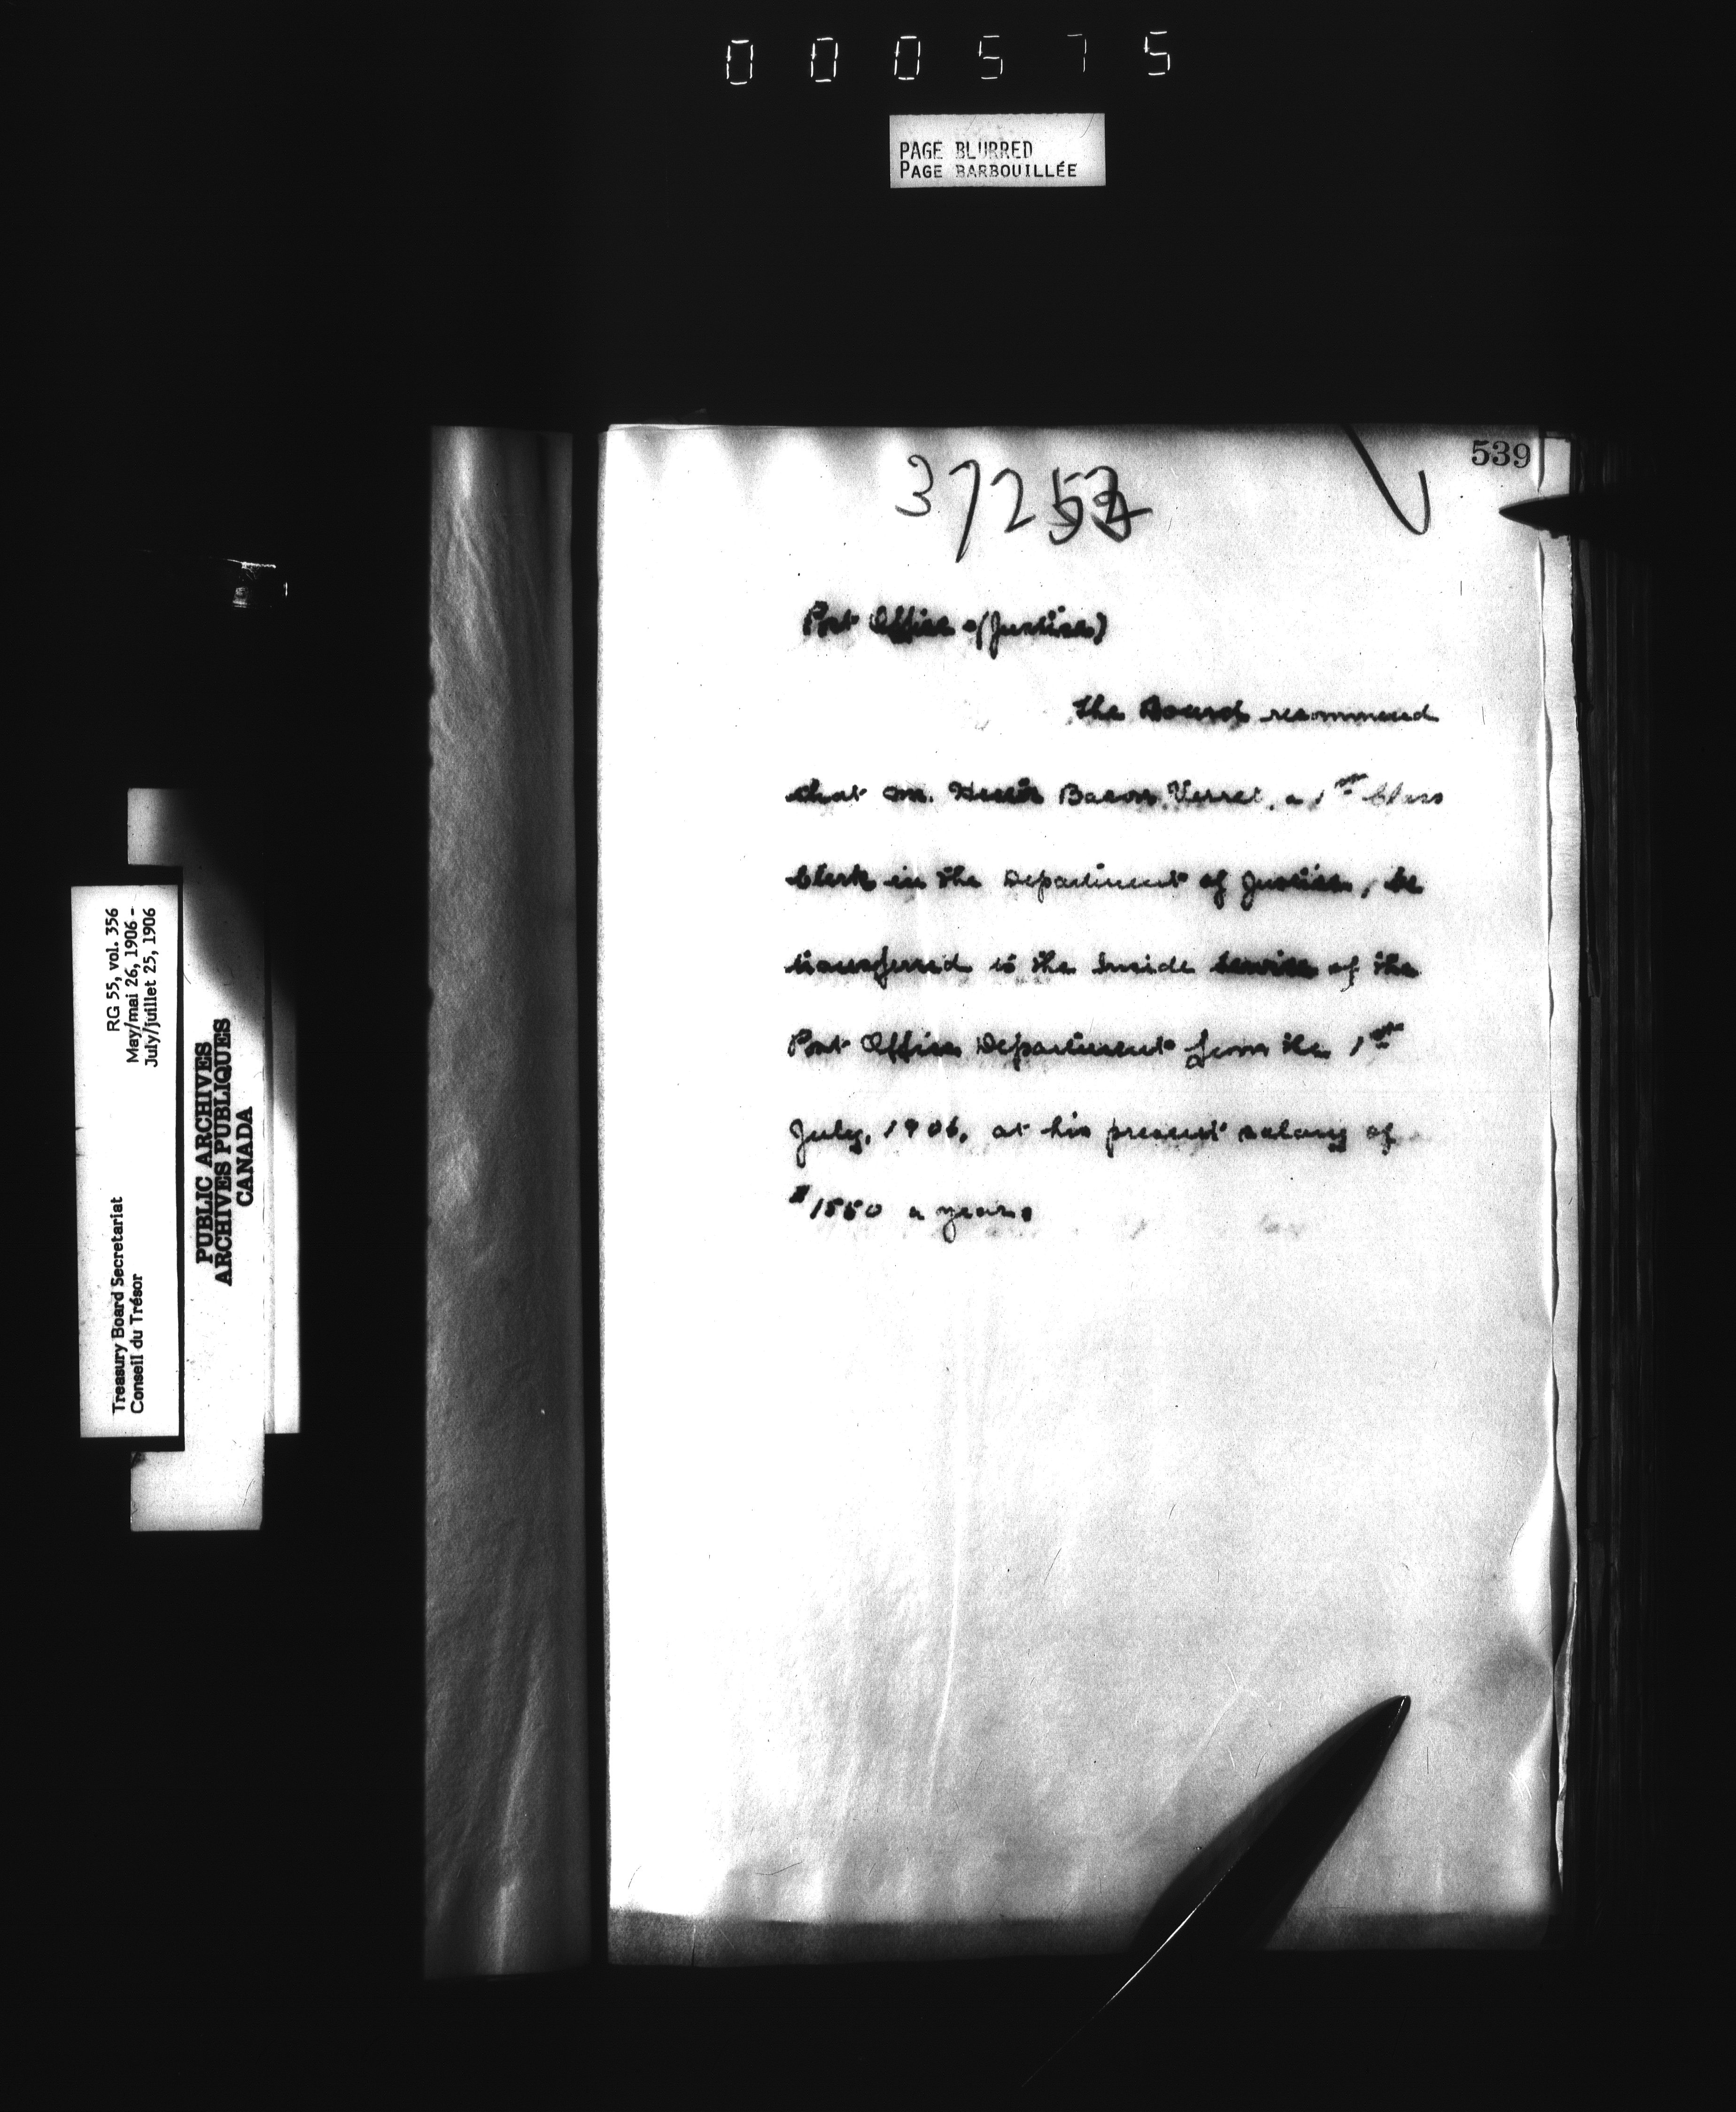 000575
PAGE BLURRED
PAGE BARBOUILLÉE
539
Post Office (Justice)
The Board recommend
that Mr. Hector Bacon Verret, a 1st Class
Clerk in the Department of Justice, be
transferred to the Inside Service of the
Post Office Department from the 1st
July, 1906, at his present salary of
$1550 a year.
RG 55, vol. 356
May/mai 26, 1906 -
July/juillet 25, 1906
Treasury Board Secretariat
Conseil du Trésor
PUBLIC ARCHIVES
ARCHIVES PUBLIQUES
CANADA